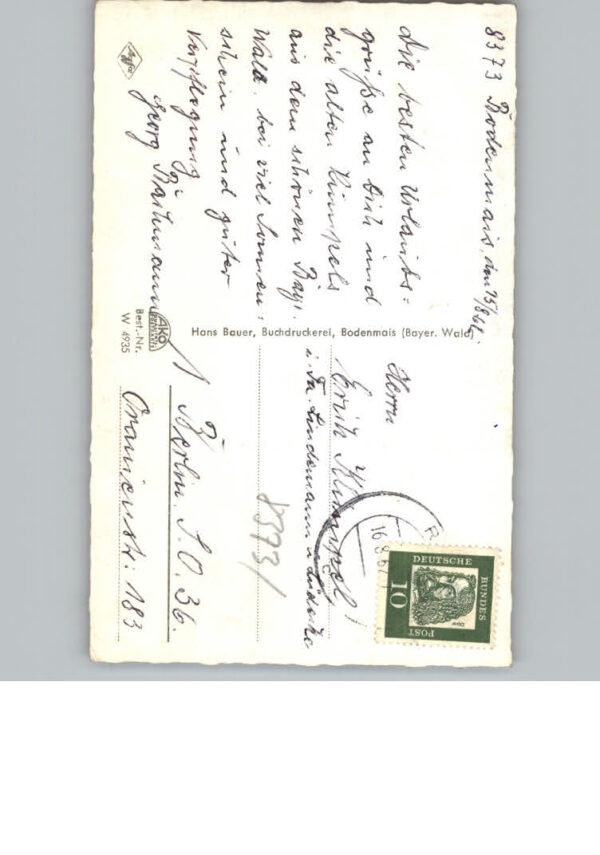 8373 Bodenmais, den 15/8.62.
Die besten Urlaubs=
grüße an Dich und
die alten Kümpels
aus dem schönen Bayr.
Wald. bei viel Sonnen=
schein und guter
Verpflegung
Georg
Agfa
AKO
Best.-Nr.
W 4935
Hans Bauer, Buchdruckerei, Bodenmais (Bayer. Wald)
Herrn
Erich
i. Fa. Lindemann u. Lüdecke
1 Berlin. S.O. 36.
Oranienstr. 183
8373/
16.8.62
DEUTSCHE
BUNDES
POST
10
Dürer